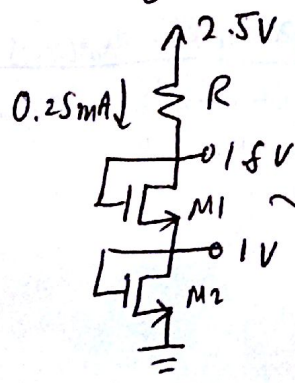 2.5V
0.25mA
R
1.8V
M1
1V
M2